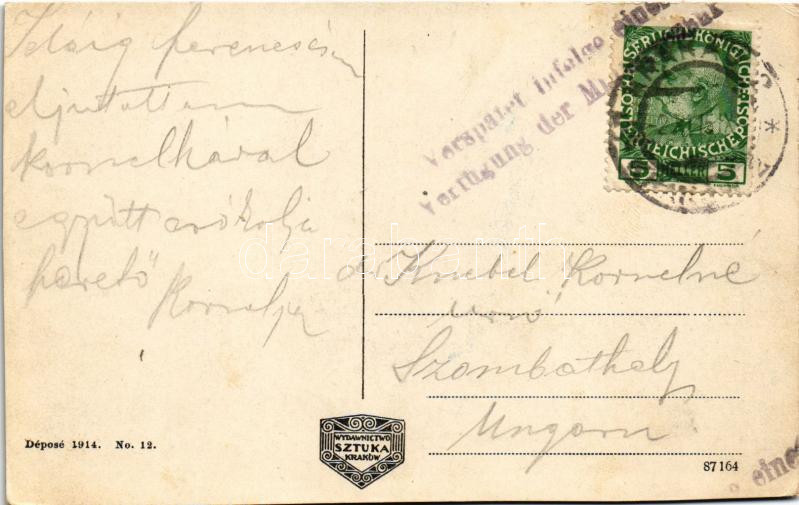 Idáig szerencsésen
eljutottam
kornélkával
együtt csókolja
szerető
Kornélja
Verspätet infolge einer
Verfügung der
KAISERLICHE KÖNIGLICHE
ÖSTERREICHISCHE POST
5 HELLER 5
dr Knebel Kornélné
úrnő
Szombathely
Ungarn
darabanth
Déposé 1914. No. 12.
WYDAWNICTWO
SZTUKA
KRAKÓW
87164
e einer